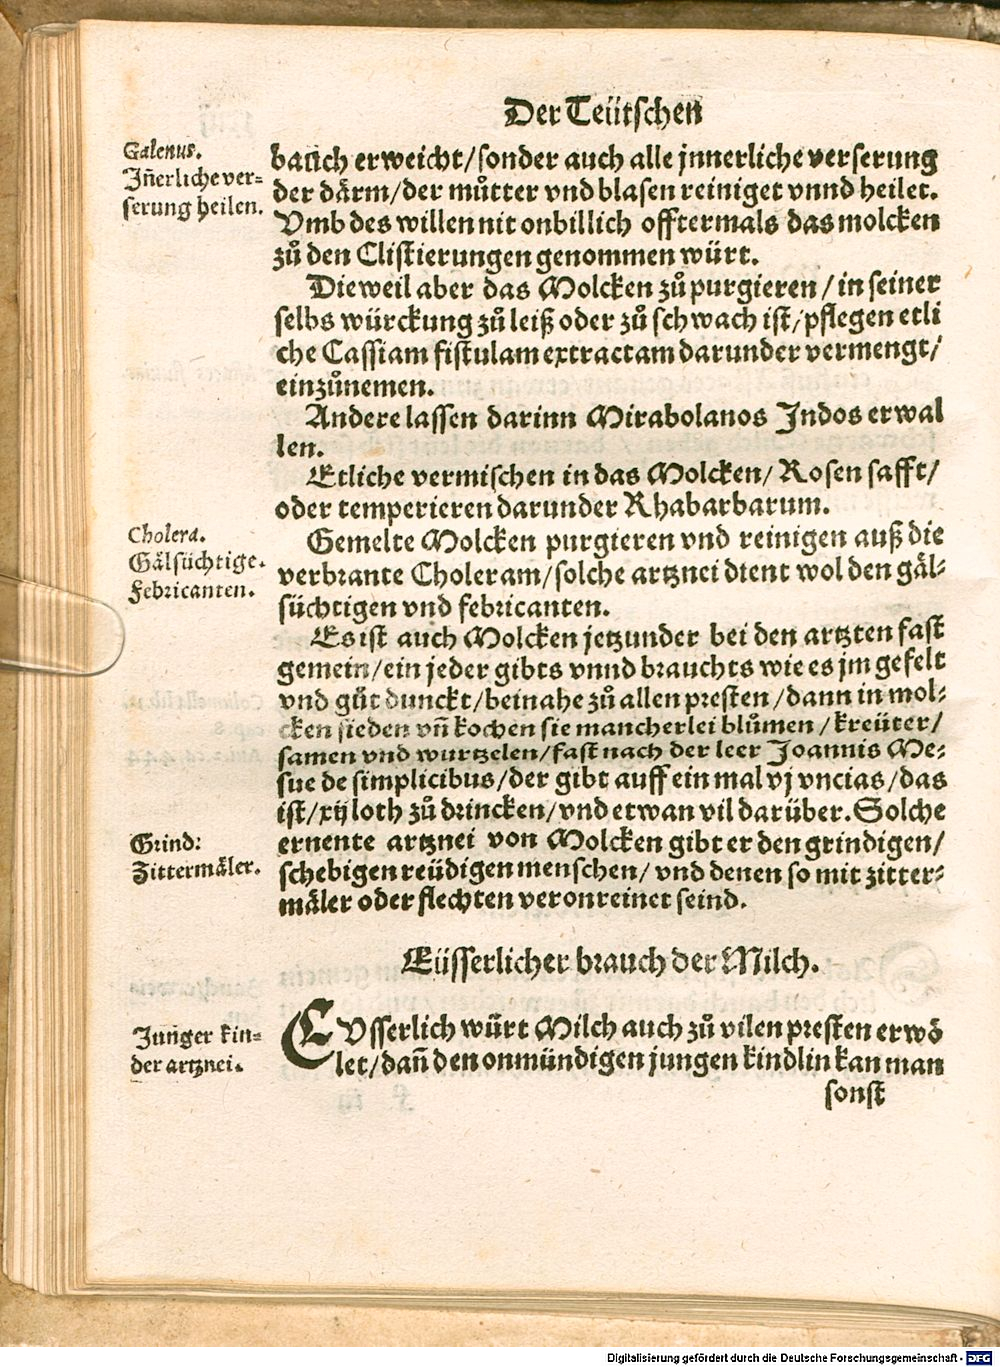 Der Teütschen
Galenus.
Jñerliche ver-
serung heilen.
bauch erweicht/sonder auch alle jnnerliche verserung
der därm/der můtter vnd blasen reiniget vnnd heilet.
Vmb des willen nit onbillich offtermals das molcken
zů den Clistierungen genommen würt.
Dieweil aber das Molcken zů purgieren/in seiner
selbs würckung zů leiß oder zů schwach ist/pflegen etli
che Cassiam fistulam extractam darunder vermengt/
einzůnemen.
Andere lassen darinn Mirabolanos Jndos erwal
len.
Etliche vermischen in das Molcken/Rosen safft/
oder temperieren darunder Rhabarbarum.
Cholera.
Gälsüchtige.
Febricanten.
Gemelte Molcken purgieren vnd reinigen auß die
verbrante Choleram/solche artznei dient wol den gäl-
süchtigen vnd febricanten.
Es ist auch Molcken jetzunder bei den artzten fast
gemein/ein jeder gibts vnnd brauchts wie es jm gefelt
vnd gůt dunckt/beinahe zů allen presten/dann in mol-
cken sieden vñ kochen sie mancherlei blůmen/kreüter/
samen vnd wurtzelen/fast nach der leer Joannis Me-
sue de simplicibus/der gibt auff ein mal vj vncias/das
ist/xij loth zů drincken/vnd etwan vil darüber. Solche
Grind:
Zittermäler.
ernente artznei von Molcken gibt er den grindigen/
schebigen reüdigen menschen/vnd denen so mit zitter-
mäler oder flechten veronreinet seind.
Eüsserlicher brauch der Milch.
Junger kin-
der artznei.
EVsserlich würt Milch auch zů vilen presten erwö
let/dañ den onmündigen jungen kindlin kan man
sonst
Digitalisierung gefördert durch die Deutsche Forschungsgemeinschaft - DFG